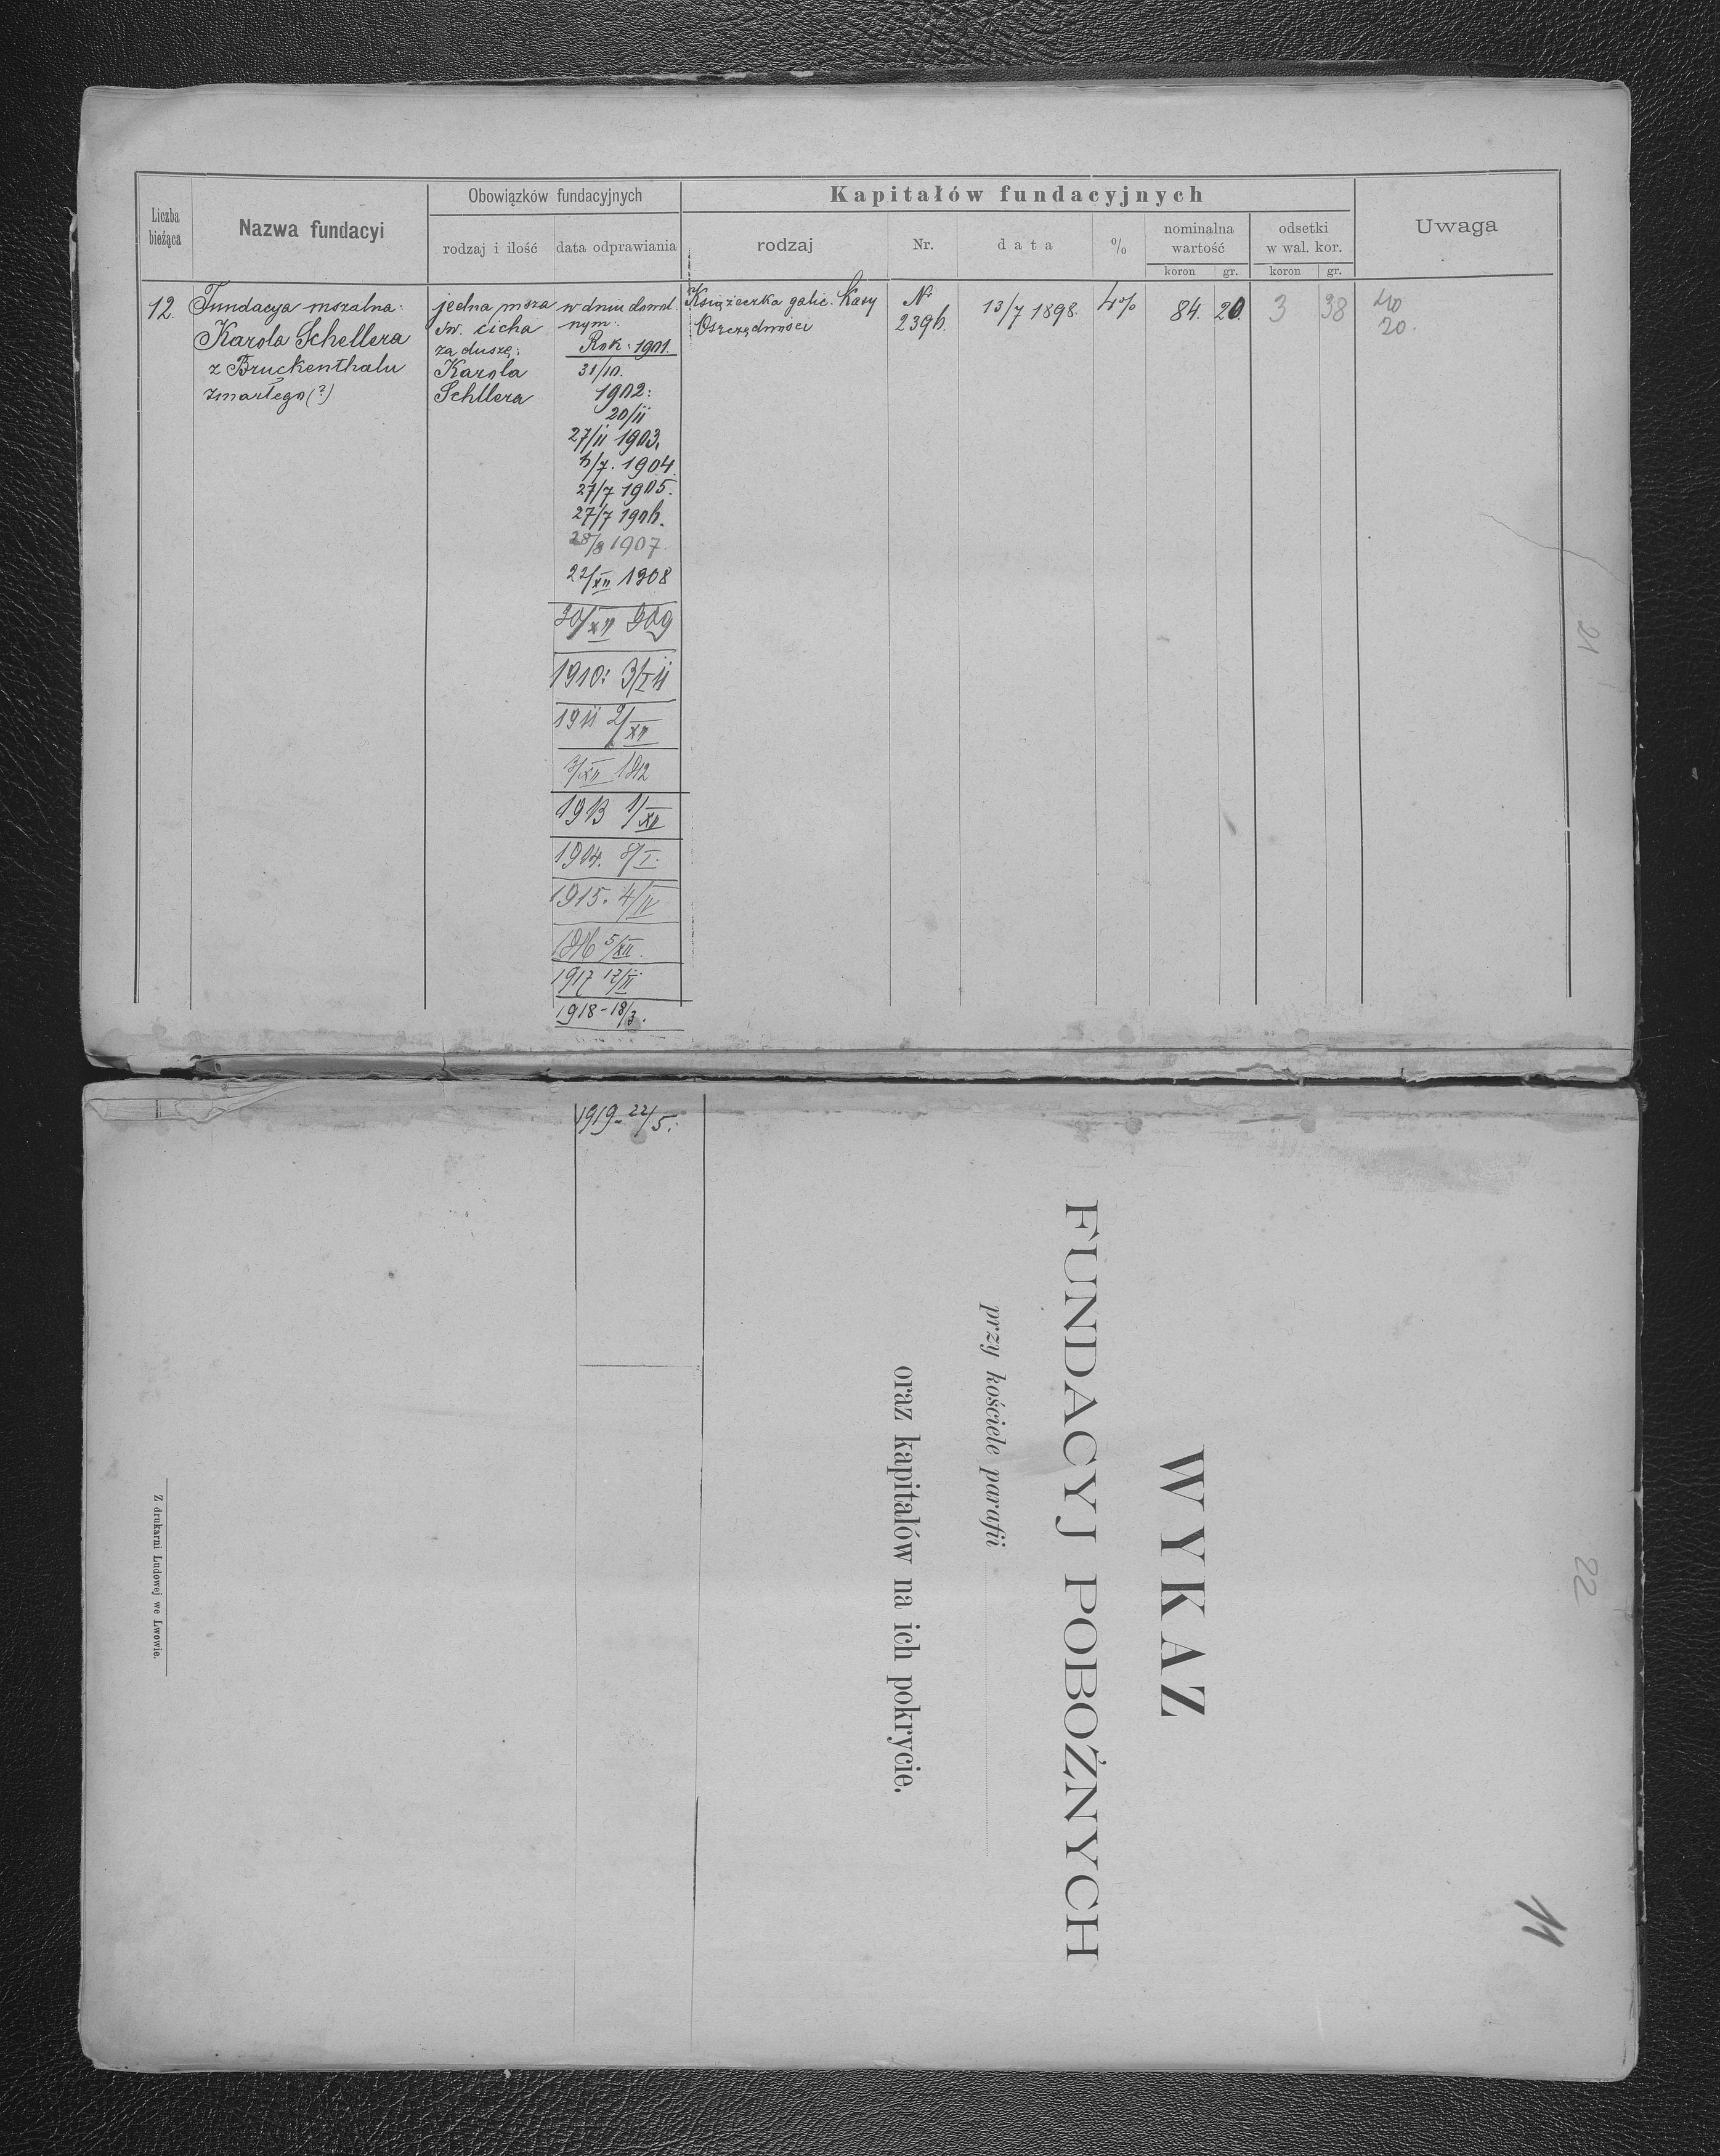 Liczba bieżąca
Nazwa fundacyi
Obowiązków fundacyjnych
rodzaj i ilość
data odprawiania
Kapitałów fundacyjnych
rodzaj
Nr.
data
%
nominalna wartość
koron gr.
odsetki w wal. kor.
koron gr.
Uwaga
12.
Fundacya mszalna:
Karola Schellera
z Bruckenthalu
zmarłego (?)
jedna msza
św. cicha
za duszę:
Karola
Schllera
w dniu dowol
nym:
Rok: 1901.
31/10.
1902:
20/11
27/11 1903.
6/7. 1904.
27/7 1905.
27/7 1906.
28/8 1907.
22/XII 1908
30/XII 909
1910: 3/XII
1911 2/XII
3/XII 1912
1913 1/XII
1914. 8/I.
1915. 4/IV
1916 5/XII.
1917 12/II
1918 - 18/3.
Książeczka galic. Kasy
Oszczędności
Nr
2396.
13/7 1898.
4%
84. 20.
3 38
40
20.
21
1919. 22/5.
WYKAZ
FUNDACYJ POBOŻNYCH
przy kościele parafii
oraz kapitałów na ich pokrycie.
Z drukarni Ludowej we Lwowie.
22
11